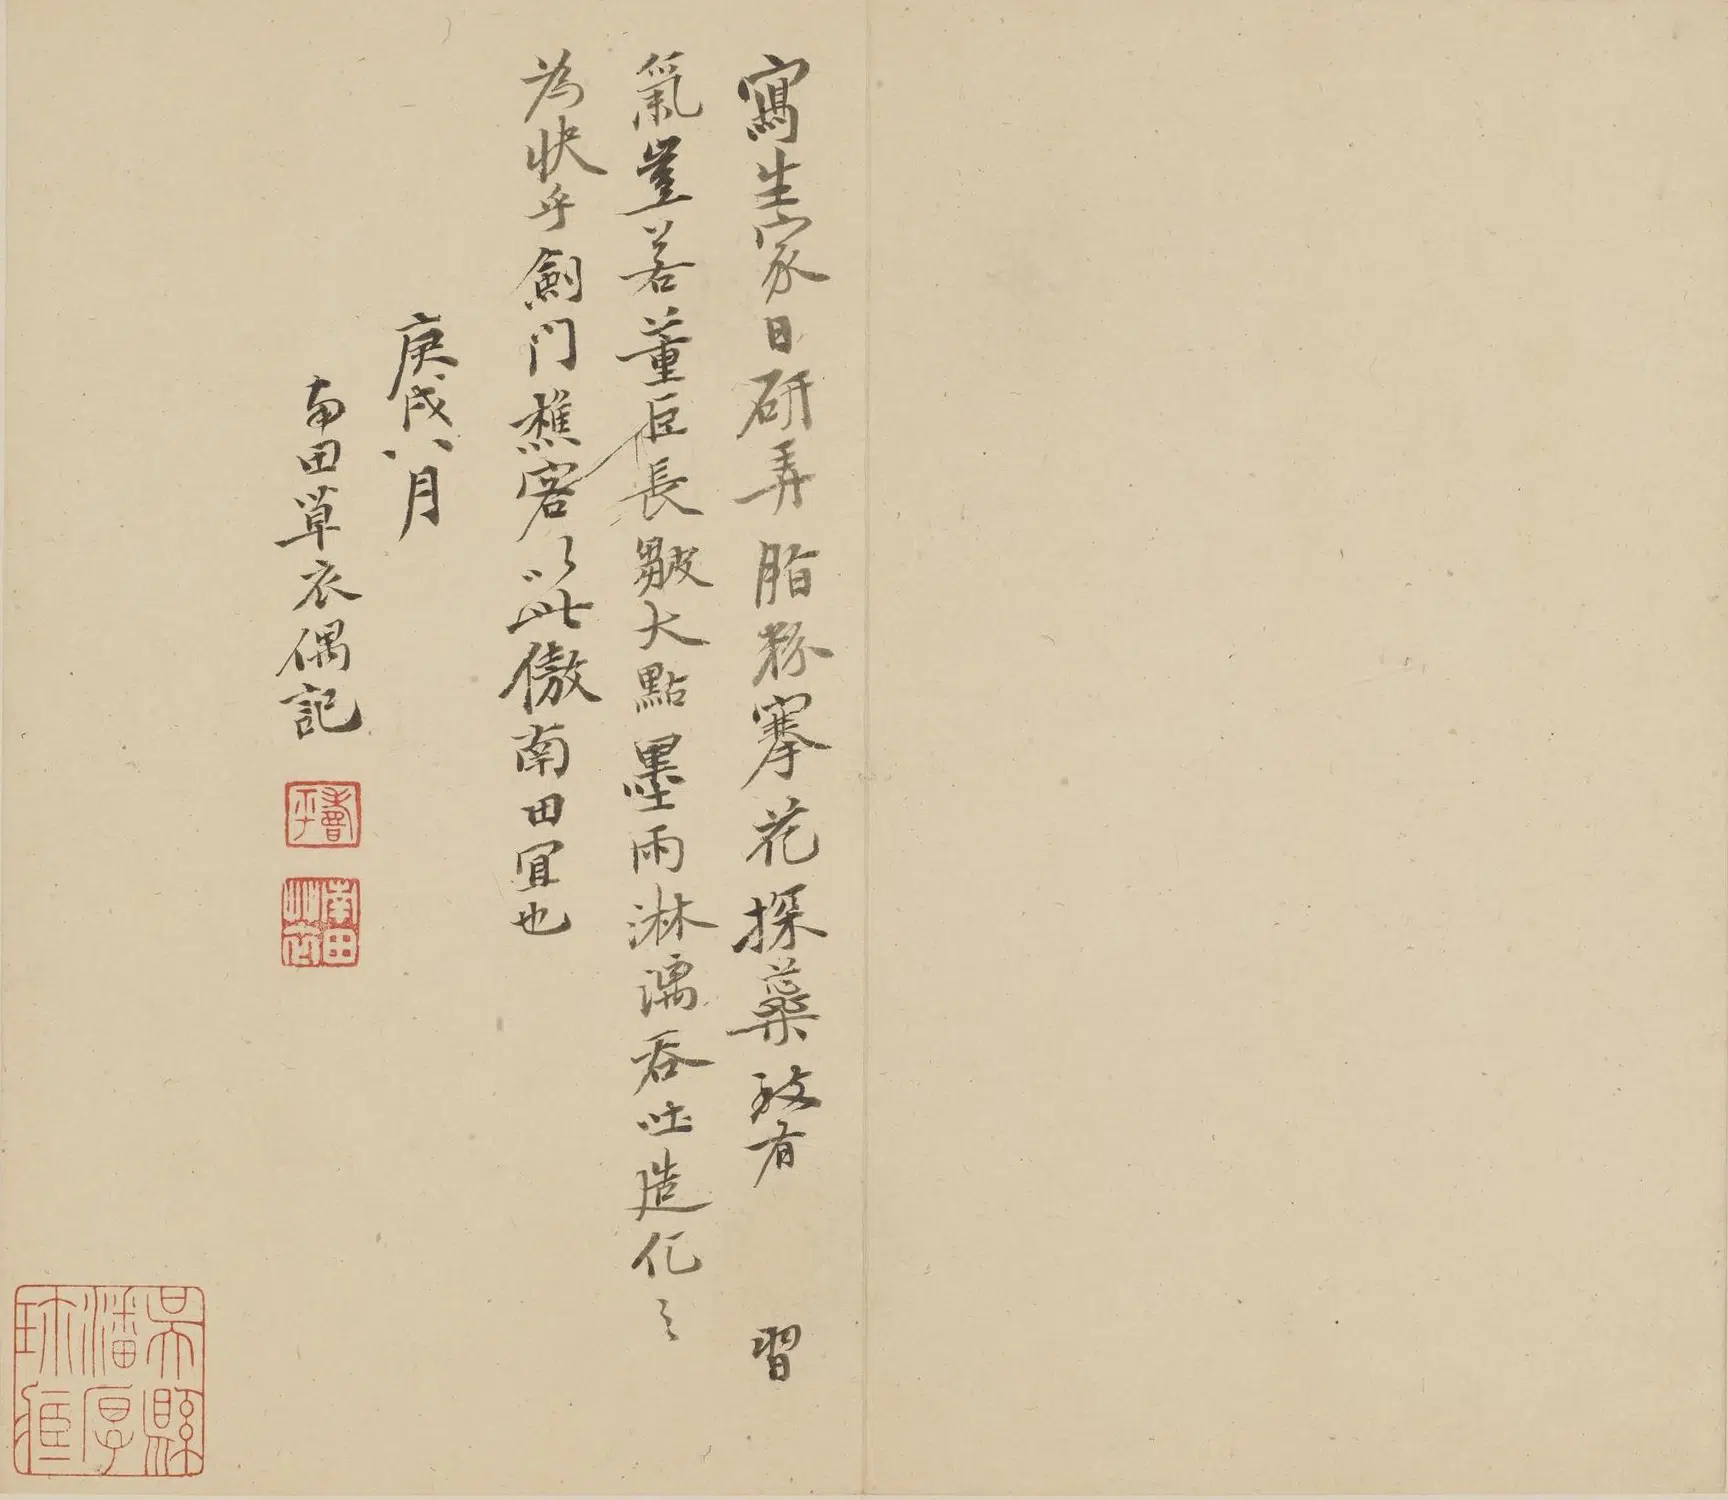 寫生家日研弄脂粉搴花探蘂致有 習
氣豈若董巨長皴大點墨雨淋漓吞吐造化之
為快乎劍门樵客以此傲南田宜也
庚戌八月
南田草衣偶記
壽平
南田艸衣
吳縣潘厚